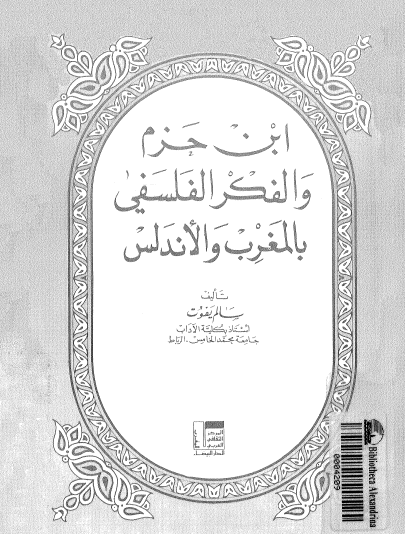 ابن حزم
والفكر الفلسفي
بالمغرب والأندلس
تأليف
سالم يفوت
أستاذ بكلية الآداب
جامعة محمد الخامس - الرباط
المركز
الثقافي
العربي
الدار البيضاء
Bibliotheca Alexandrina
0004209